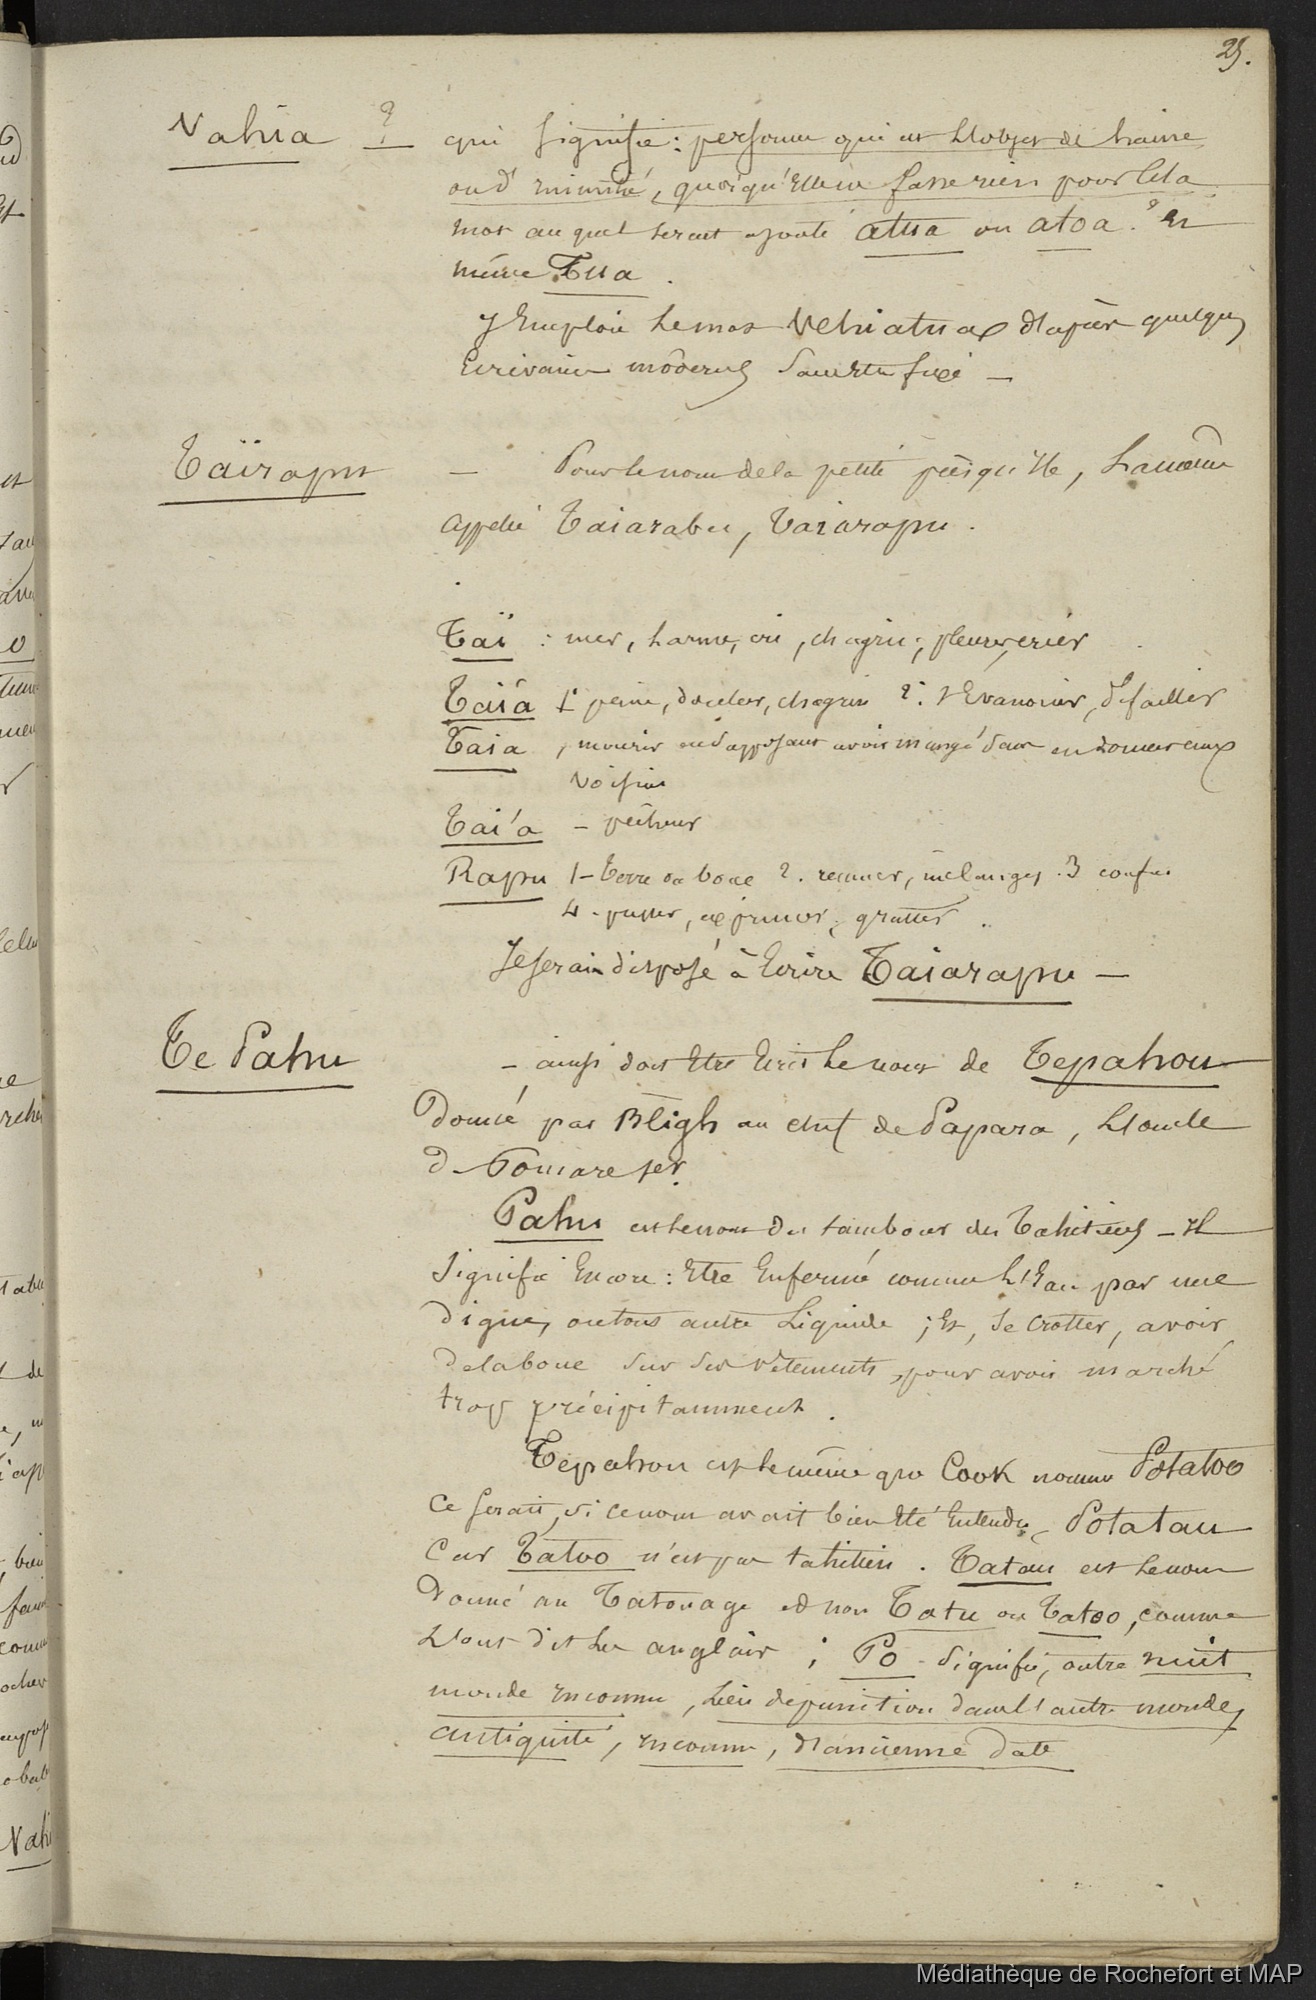 25.
Vahia ? qui signifie : personne qui est l'objet de haine
ou d'inimitié, quoiqu'elle ne fasse rien pour cela
mot au quel serait ajouté atua ou atoa ? et
même Tua.
J'emploie le mot Vehiatua d'après quelques
Ecrivains modernes sans être fixé —
Taïrapu — Pour le nom de la petite presqu'ile,
appelé Taiarabu, Taiarapu.
Taï : mer, larme, cri, chagrin ; pleurer, crier
Taiá 1° peine, douleur, chagrin 2°. s'Evanouir, défaillir
Taia, mourir en s'apposant avoir mangé sans en donner aux
voisins
Tai'a — pêcheur
Rapu 1 — terre ou boue 2. remuer, mélanger. 3 confus
4 - presser, exprimer, gratter.
Je serais disposé à Ecrire Taiarapu —
Te Pahu — ainsi doit Etre Ecrit le nom de Tepahou
Donné par Bligh au chef de Papara, l'oncle
de Pomare 1er.
Pahu est le nom du tambour des Tahitiens — Il
signifie Encore : Etre Enfermé comme l'Eau par une
digue, ou tout autre Liquide ; Et, se crotter, avoir
de la boue sur ses vêtements, pour avoir marché
trop précipitamment.
Tepahou est le même que Cook nomme Potatoo
Ce serait, si ce nom avait bien Eté Entendu, Potatau
Car Tatoo n'est pas tahitien. Tatau est le nom
Donné au Tatouage et non Tatu ou Tatoo, comme
L'ont dit les anglais ; Po — signifie, outre nuit
monde inconnu, Lieu de punition dans l'autre monde,
antiquité, inconnu, d'ancienne date
Médiathèque de Rochefort et MAP